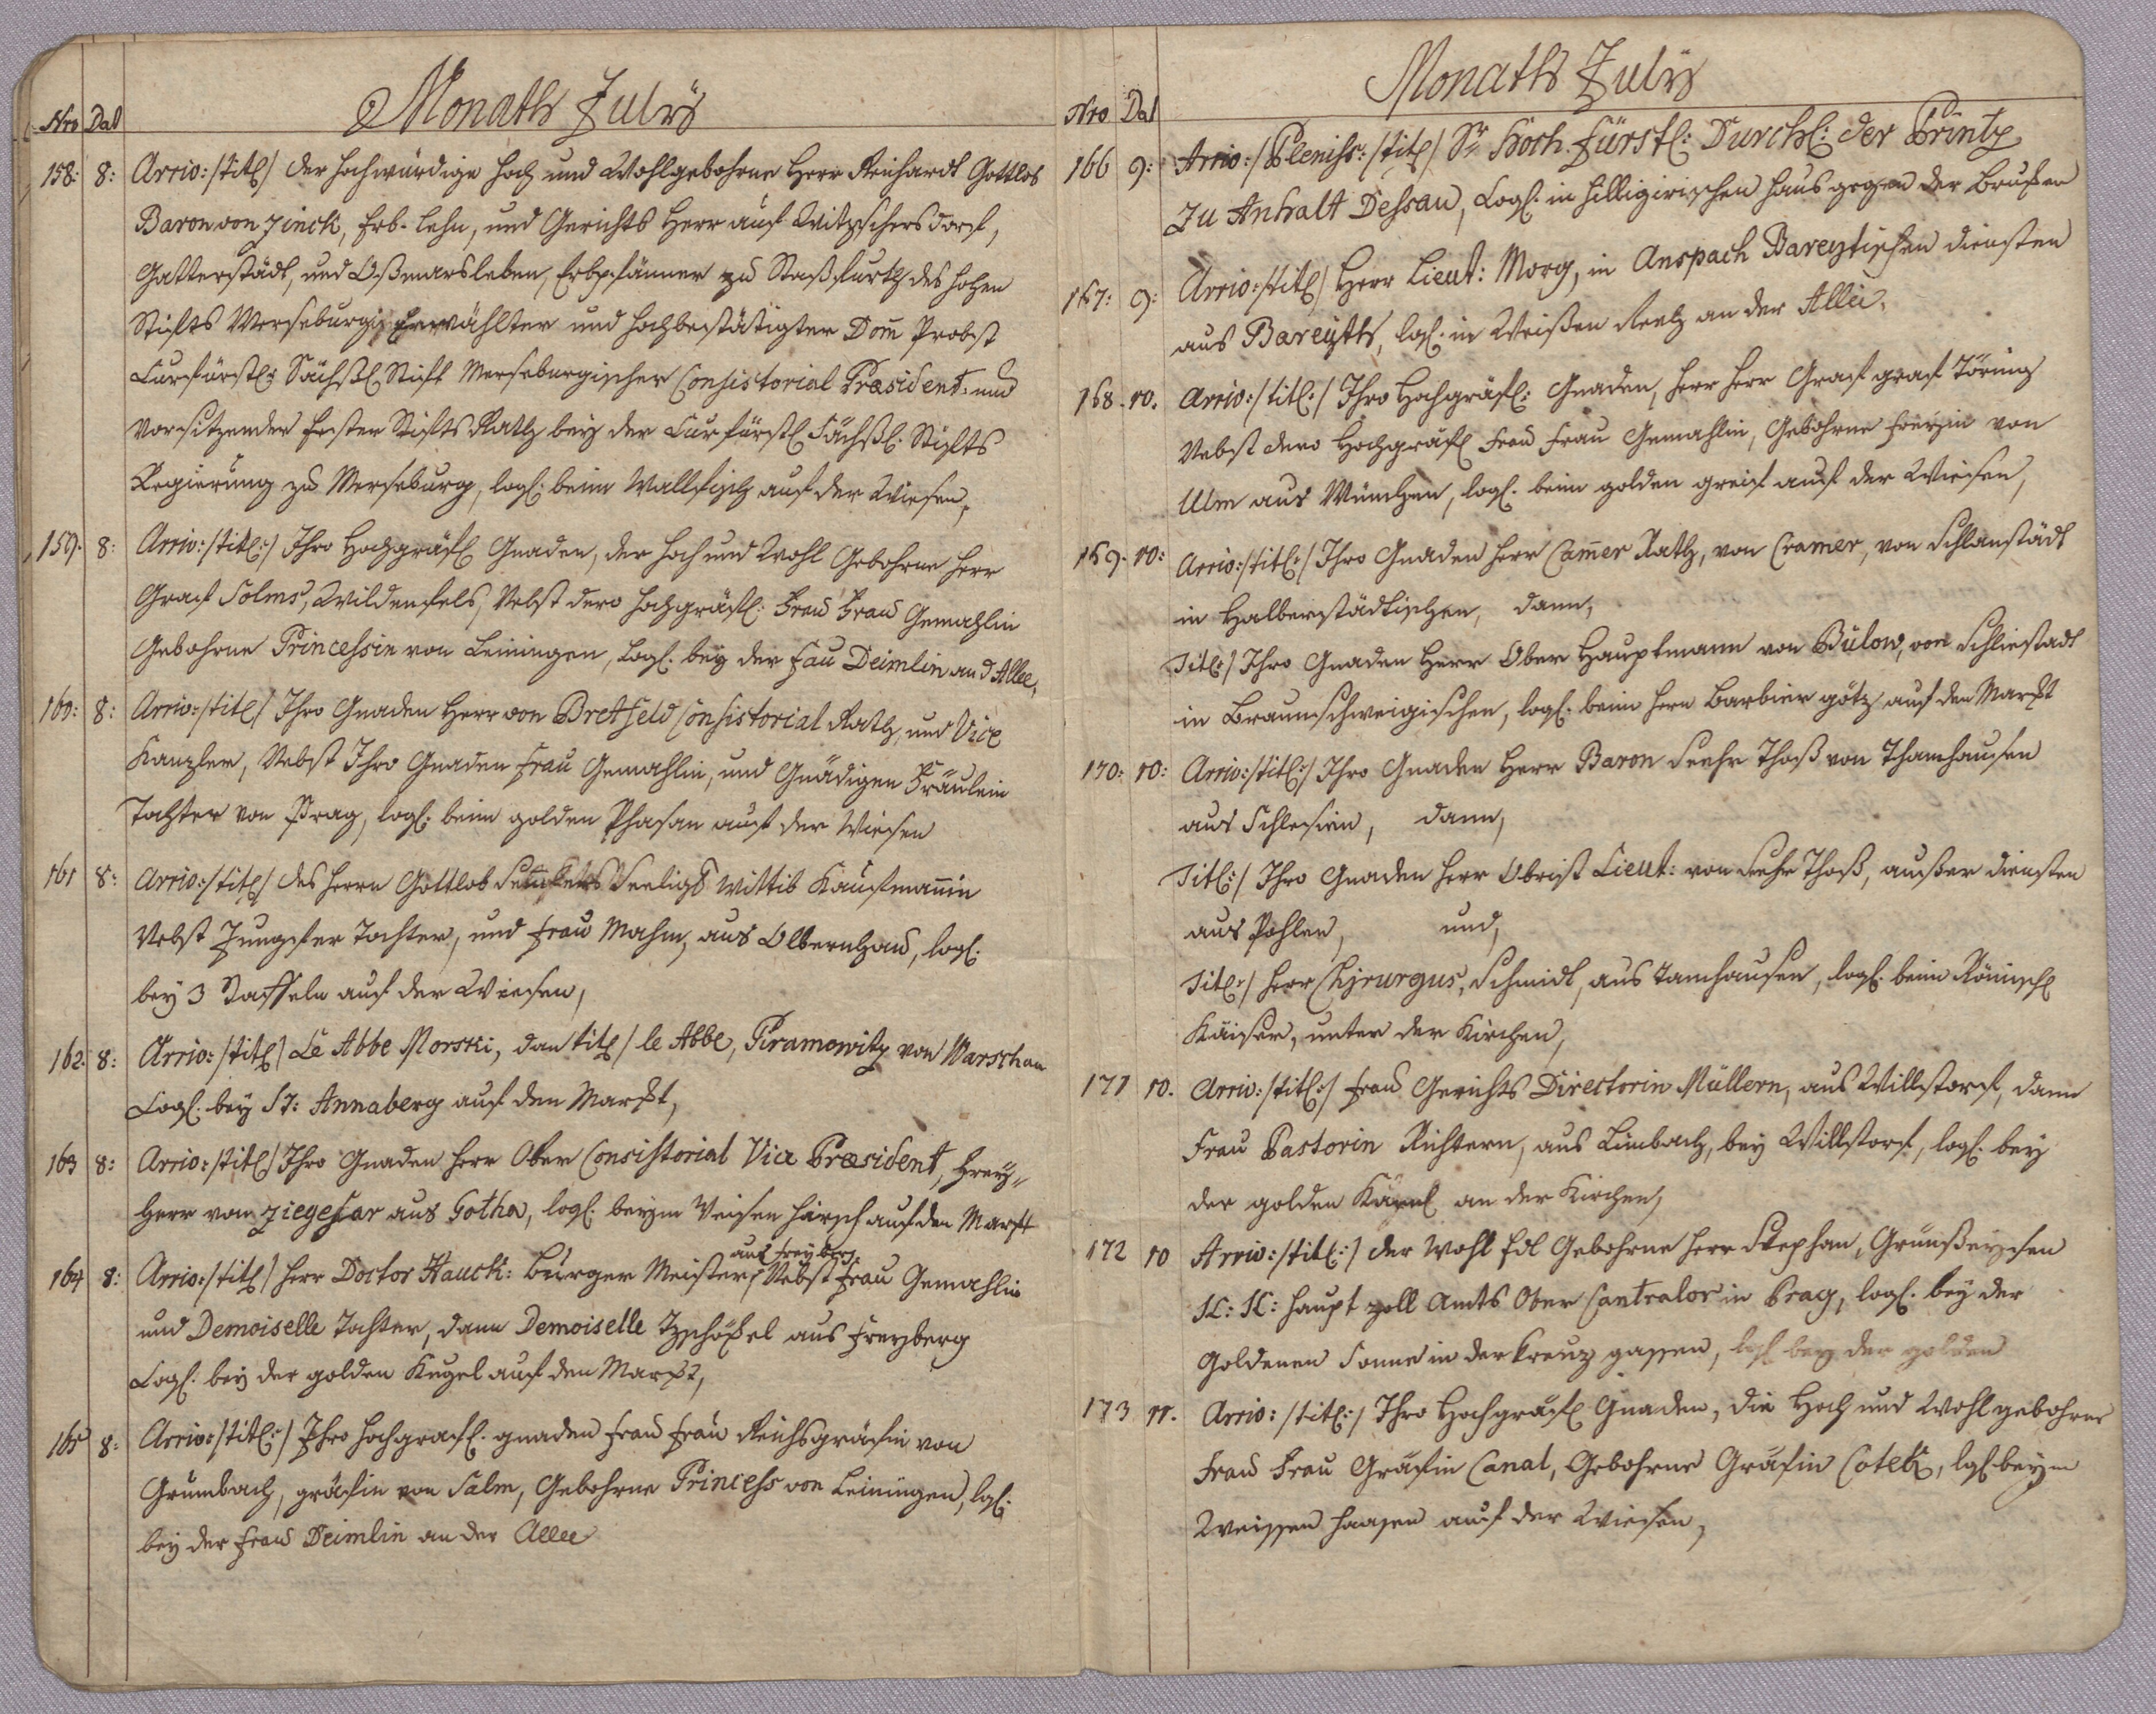 Monaths Julÿ
Nro Dat
158: 8: Arriv: /titl/ der Hochwürdige Hoch und Wohlgebohrne Herr Reinhardt Gottlob
Baron von Zinck, Erb- Lehn, und Gerichts Herr auf Witzschersdorf,
Gatterstädt, und Oßmarsleben, Erbpfänner zu Staßfurth des hohen
Stifts Merseburg Erwählter und Hochbestätigter Dom̅ Probst
Curfürstl: Sächßl Stift Merseburgischer Consistorial Præsident und
Vorsitzender Erster Stifts Rath bey der Curfürstl Sächßl: Stifts
Regierung zu Merseburg, logl: beim Wallfisch auf der Wiesen,
159. 8: Arriv: /titl:/ Ihro Hochgräfl Gnaden, der Hoch und Wohl Gebohrne Herr
Graf Solms, Wildenfels, Nebst dero Hochgräfl: Frau Frau Gemahlin
Gebohrne Princessin von Leiningen, Logl: bey der Frau Deimlin an d Allee,
160: 8: Arriv: /titl/ Ihro Gnaden Herr von Bretfeld Consistorial Rath, und Vice
Kanzler, Nebst Ihro Gnaden Frau Gemahlin, und Gnädigen Fräulein
Tochter von Prag, logl: beim golden Phasan auf der Wiesen
161 8: Arriv: /titl/ des Herrn Gottlob Seeligs Wittib Kaufmanin
Nebst Jungfer Tochter, und Frau Mahm, aus Olbernhau, logl:
bey 3 Staffeln auf der Wiesen,
162: 8: Arriv: /titl/ Le Abbe Morski, dan titl/ le Abbe, Piramowitz von Warschau
Logl: bey St: Annaberg auf den Markt,
163 8: Arriv: /titl/ Ihro Gnaden Herr Ober Consistorial Vice Præsident, Frey„
Herr von Ziegesar aus Gotha, logl: beym Weisen Hirsch auf den Markt
aus Freyberg
164 8: Arriv: /titl/ Herr Doctor Hauck: Bürger Meister, Nebst Frau Gemahlin
und Demoiselle Tochter, dann Demoiselle Tzschökel aus Freyberg
Logl: bey der golden Kugel auf den Markt,
165 8: Arriv: /titl:/ Ihro Hochgräfl. gnaden Frau Frau Reichsgräfin von
Grumbach, gräfin von Salm, Gebohrne Princess von Leiningen, lgl:
bey der Frau Deimlin an der Allee
Monaths Julÿ
Nro Dat
166 9: Arriv: /Pleniss: titl/ Sr Hoch Fürstl: Durchl: der Printz
zu Anhalt Dessau, Logl: in Hilligirischen Haus gegen der Bruken
167: 9: Arriv: /titl/ Herr Lieut: Morg, in Anspach Bareytischen diensten
aus Bareyth, logl: in Weißen Rech an der Allée,
168. 10. Arriv: /titl:/ Ihro Hochgräfl: Gnaden, Herr Herr Graf graf Töring
Nebst dero Hochgräfl Frau Frau Gemahlin, Gebohrne Freyin von
Ulm aus München, logl: beim golden greif auf der Wiesen,
169. 10: Arriv: /titl:/ Ihro Gnaden Herr Cam̅er Rath, von Cramer, von Schlanstädt
in Halberstädtischen, dann,
Titl:/ Ihro Gnaden Herr Ober Hauptmann von Bülow, von Schliestadt
in Braunschweigischen, logl: beim Hern Barbier götz auf den Markt
170: 10: Arriv: /titl:/ Ihro Gnaden Herr Baron Seehr Thoß von Thamhausen
aus Schlesien, dann,
Titl:/ Ihro Gnaden Herr Obrist Lieut: von Seehr Thoß, außer diensten
aus Pohlen, und,
Titl:/ Herr Chjrurgus, Schmidt, aus Tamhausen, logl: beim Römischl
Kaiser, unter der Kirchen,
171 10. Arriv: /titl:/ Frau Gerichts Directorin Müllern, aus Willstorf, dann
Frau Pastorin Richtern, aus Limbach, bey Willstorf, logl: bey
der golden an der Kirchen,
172 10 Arriv: /titl:/ der Wohl Edl Gebohrne Herr Stephan, Grünßeysen
K: K: Haupt zoll Amts Ober Cantralor in Prag, logl: bey der
Goldenen Sonne in der Kreuz gassen, logl bey der golden
173 11. Arriv: /titl:/ Ihro Hochgräfl Gnaden, die Hoch und Wohl gebohrne
Frau Frau Gräfin Canal, Gebohrne Gräfin Cotek, lgl beym
Weissen Haasen auf der Wiesen,